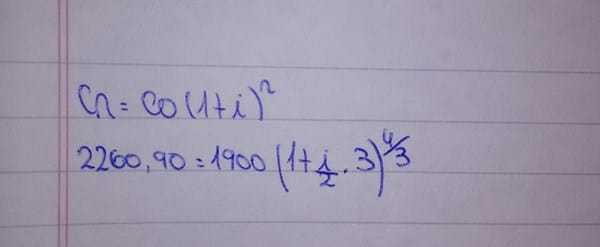 Cn = Co (1+i)^n
2260,90 = 1900 (1 + i/2 . 3)^4/3